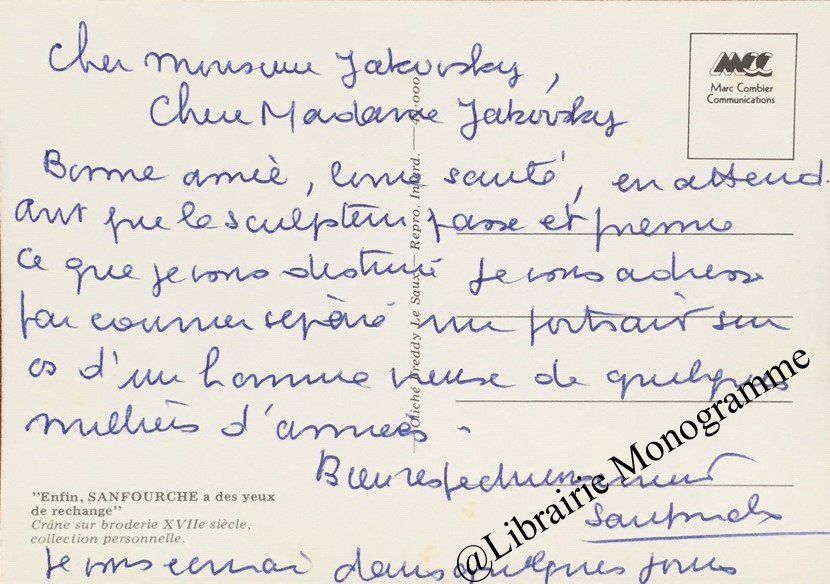 Cher Monsieur Jakovsky,
Chere Madame Jakovsky
Bonne année, bonne santé, en attend
ant que le sculpteur passe et prenne
ce que je vous destine je vous adresse
par courrier séparé un portrait sur
os d'un homme de quelques
milliers d'années.
Bien respectueusement
Sanfourche
je vous dans quelques jours
"Enfin, SANFOURCHE a des yeux
de rechange"
Crâne sur broderie XVIIe siècle,
collection personnelle.
Cliché Freddy Le Saux — Repro. Interd. — 44.000
MCC
Marc Combier
Communications
@Librairie Monogramme